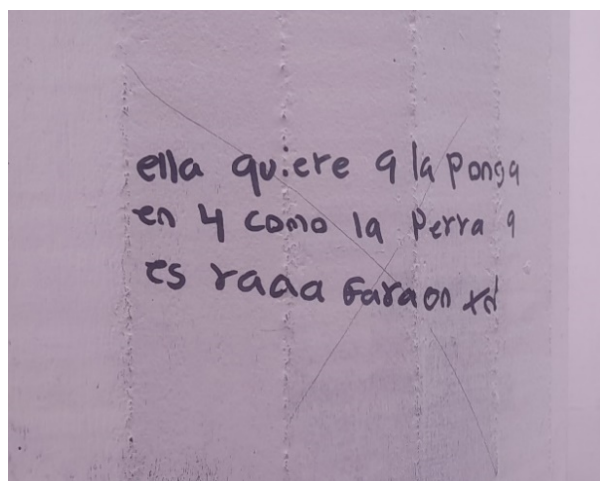 ella quiere q la ponga
en 4 como la perra q
es raaa Faraon xd